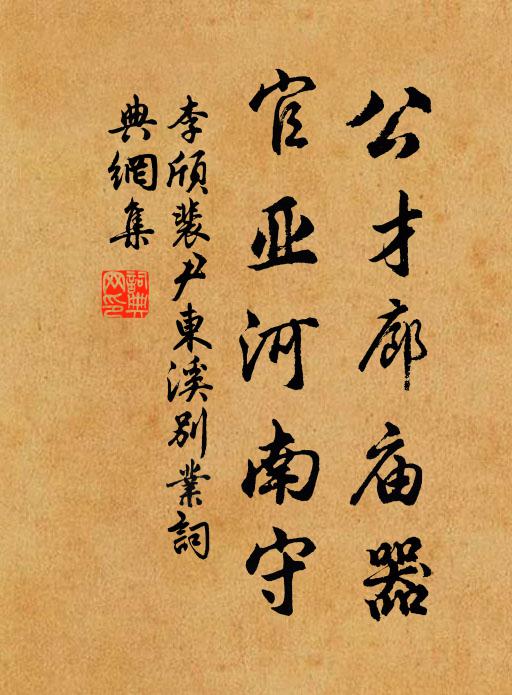 公才廊庙器
官亚河南守
李頎裴尹東溪別業詞
典網集
詞典
网印